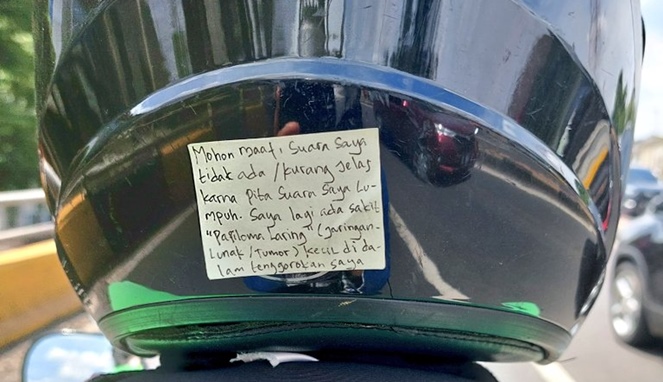 Mohon maaf, Suara Saya
tidak ada / kurang jelas
karna pita Suara Saya Lu-
mpuh. Saya lagi ada sakit
"Papiloma Laring" (Jaringan-
Lunak / Tumor) kecil di da-
lam tenggorokan saya